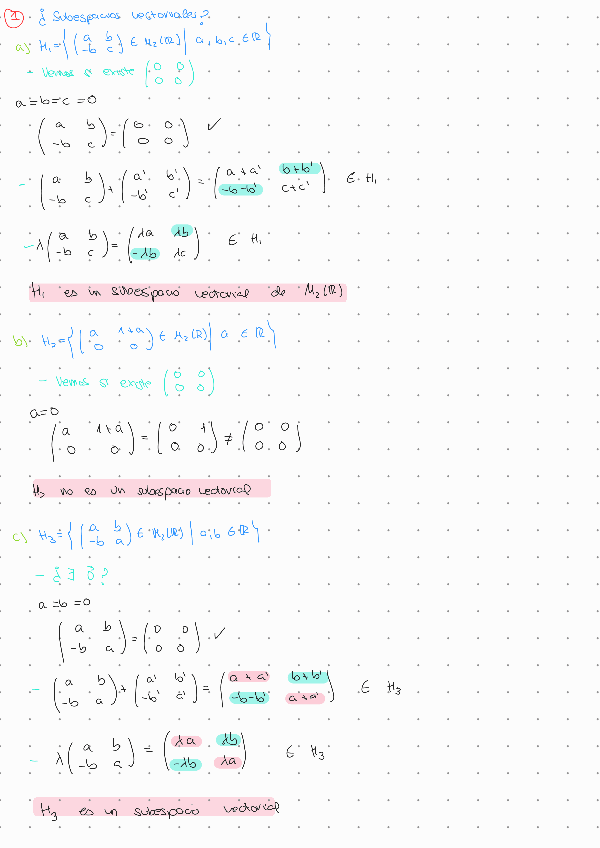 1 ¿ Subespacios vectoriales?
a) H₁ = { ( a b ; -b c ) ∈ M₂(ℝ) | a, b, c ∈ ℝ }
* Vemos si existe ( 0 0 ; 0 0 )
a = b = c = 0
( a b ; -b c ) = ( 0 0 ; 0 0 ) ✓
- ( a b ; -b c ) + ( a' b' ; -b' c' ) = ( a+a' b+b' ; -b-b' c+c' ) ∈ H₁
- λ ( a b ; -b c ) = ( λa λb ; -λb λc ) ∈ H₁
H₁ es un subespacio vectorial de M₂(ℝ)
b) H₂ = { ( a 1+a ; 0 0 ) ∈ M₂(ℝ) | a ∈ ℝ }
- Vemos si existe ( 0 0 ; 0 0 )
a=0
( a 1+a ; 0 0 ) = ( 0 1 ; 0 0 ) ≠ ( 0 0 ; 0 0 )
H₂ no es un subespacio vectorial
c) H₃ = { ( a b ; -b a ) ∈ M₂(ℝ) | a, b ∈ ℝ }
- ¿ ∃ 0̄ ?
a = b = 0
( a b ; -b a ) = ( 0 0 ; 0 0 ) ✓
- ( a b ; -b a ) + ( a' b' ; -b' a' ) = ( a+a' b+b' ; -b-b' a+a' ) ∈ H₃
- λ ( a b ; -b a ) = ( λa λb ; -λb λa ) ∈ H₃
H₃ es un subespacio vectorial